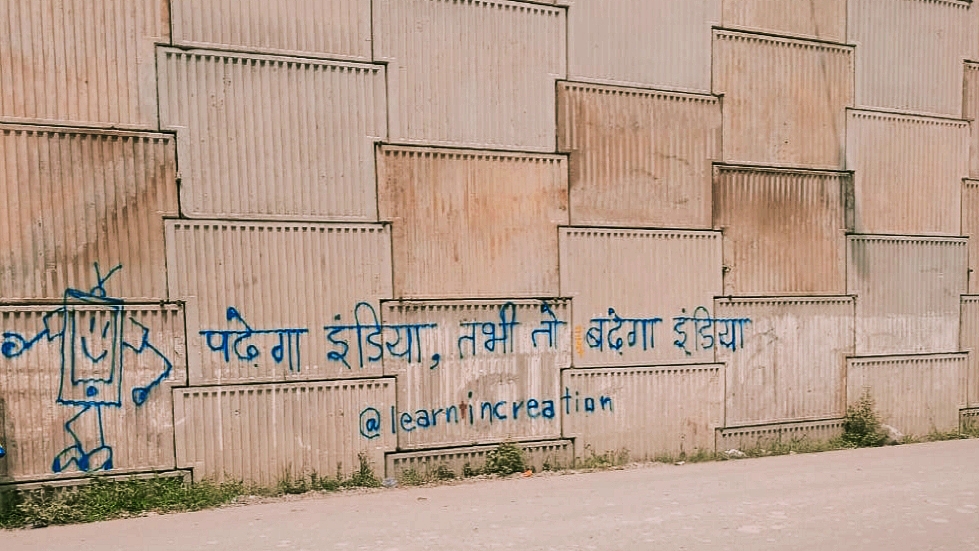 पढ़ेगा इंडिया, तभी तो बढ़ेगा इंडिया
@learnincreation